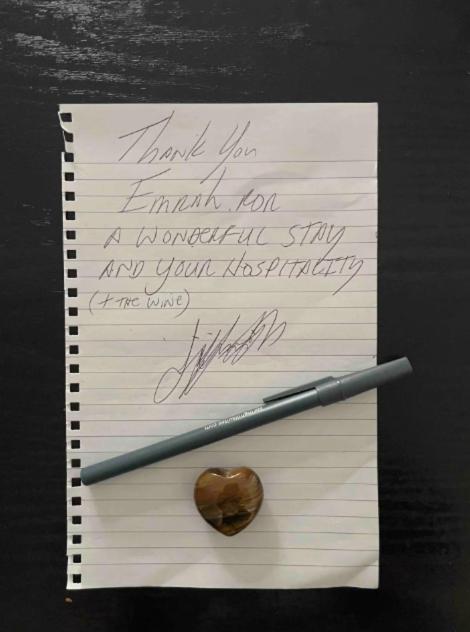 Thank You
Emrah for
A WONDERFUL STAY
AND YOUR HOSPITALITY
(+ THE WINE)